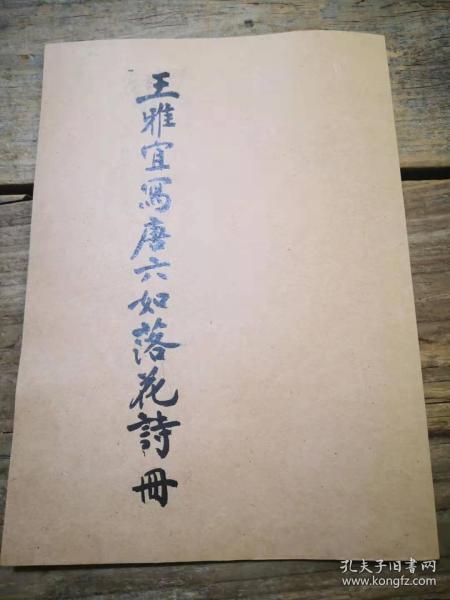 王雅宜寫唐六如落花詩冊
孔夫子旧书网
www.kongfz.com